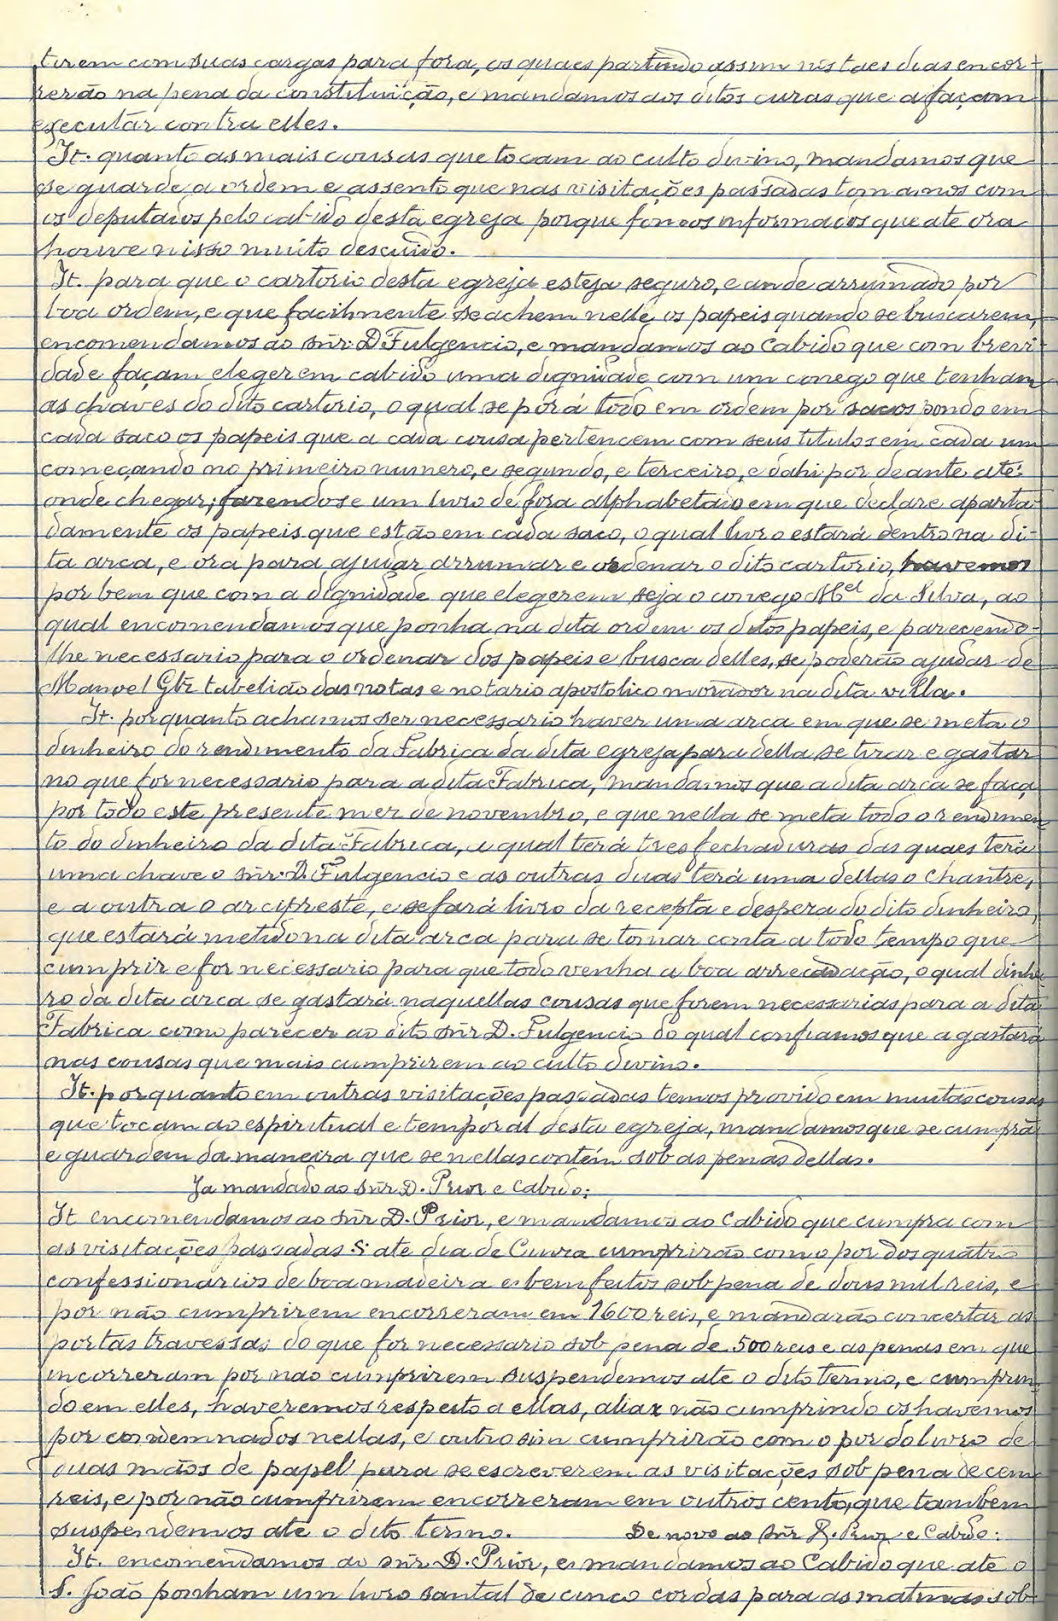 tirem com suas cargas para fora, os quaes partindo assim nos taes dias encor-
rerão na pena da constituição, e mandamos aos ditos curas que a façam
executar contra elles.
It. quanto as mais cousas que tocam ao culto divino, mandamos que
se guarde a ordem e assento que nas visitações passadas tomamos com
os deputados pelo cabido desta egreja porque fomos informados que ate ora
houve nisso muito descuido.
It. para que o cartorio desta egreja esteja seguro, e ande arruinado por
boa ordem, e que facilmente se achem nelle os papeis quando se buscarem,
encomendamos ao snr D Fulgencio, e mandamos ao Cabido que com brevi-
dade façam eleger em cabido uma dignidade com um conego que tenham
as chaves do dito cartorio, o qual se porá todo em ordem por sacos pondo em
cada saco os papeis que a cada cousa pertencem com seus titulos em cada um
começando no primeiro numero, e segundo, e terceiro, e dahi por deante até
onde chegar; fazendo-se um livro de fora alphabetado em que declare aparta-
damente os papeis que estão em cada saco, o qual livro estará dentro na di-
ta arca, e ora para ajudar arrumar e ordenar o dito cartorio, havemos
por bem que com a dignidade que elegerem seja o conego Mel da Silva, ao
qual encomendamos que ponha na dita ordem os ditos papeis, e parecendo-
lhe necessario para o ordenar dos papeis e busca delles, se poderão ajudar de
Manoel Glz tabelião das notas e notario apostolico morador na dita villa.
It. porquanto achamos ser necessario haver uma arca em que se meta o
dinheiro do rendimento da Fabrica da dita egreja para della se tirar e gastar
no que for necessario para a dita Fabrica, mandamos que a dita arca se faça
por todo este presente mez de novembro, e que nella se meta todo o rendimen-
to do dinheiro da dita Fabrica, a qual terá tres fechaduras das quaes terá
uma chave o snr. D. Fulgencio e as outras duas terá uma dellas o Chantre,
e a outra o arcipreste, e se fará livro da recepta e despeza do dito dinheiro,
que estará metido na dita arca para se tomar conta a todo tempo que
cumprir e for necessario para que todo venha a boa arrecadação, o qual dinhei-
ro da dita arca se gastará naquellas cousas que forem necessarias para a dita
Fabrica como parecer ao dito snr D. Fulgencio do qual confiamos que a gastará
nas cousas que mais cumprirem ao culto divino.
It. porquanto em outras visitações passadas temos provido em muitas cousas
que tocam ao espiritual e temporal desta egreja, mandamos que se cumprã
e guardem da maneira que se nellas contém sob as penas dellas.
Ja mandado ao Snr D. Prior e Cabido:
It encomendamos ao snr D. Prior, e mandamos ao Cabido que cumpra com
as visitações passadas S. ate dia de cumprirão com o por dos quatro
confessionarios de boa madeira e bem feitos sob pena de dous mil reis, e
por não cumprirem encorreram em 1600 reis, e mandarão concertar as
portas travessas do que for necessario sob pena de 500 reis e as penas em que
incorreram por nao cumprirem suspendemos ate o dito termo, e cumprin-
do em elles, haveremos respeito a ellas, aliax não cumprindo os havemos
por condemnados nellas, e outrosim cumprirão com o por do livro de
duas mãos de papel para se escreverem as visitações sob pena de cem
reis, e por não cumprirem encorreram em outros cento, que tambem
suspendemos ate o dito termo. De novo ao Snr D. Prior e Cabido:
It. encomendamos ao snr D. Prior, e mandamos ao Cabido que ate o
S. João ponham um livro santal de cinco cordas para as matinas sob